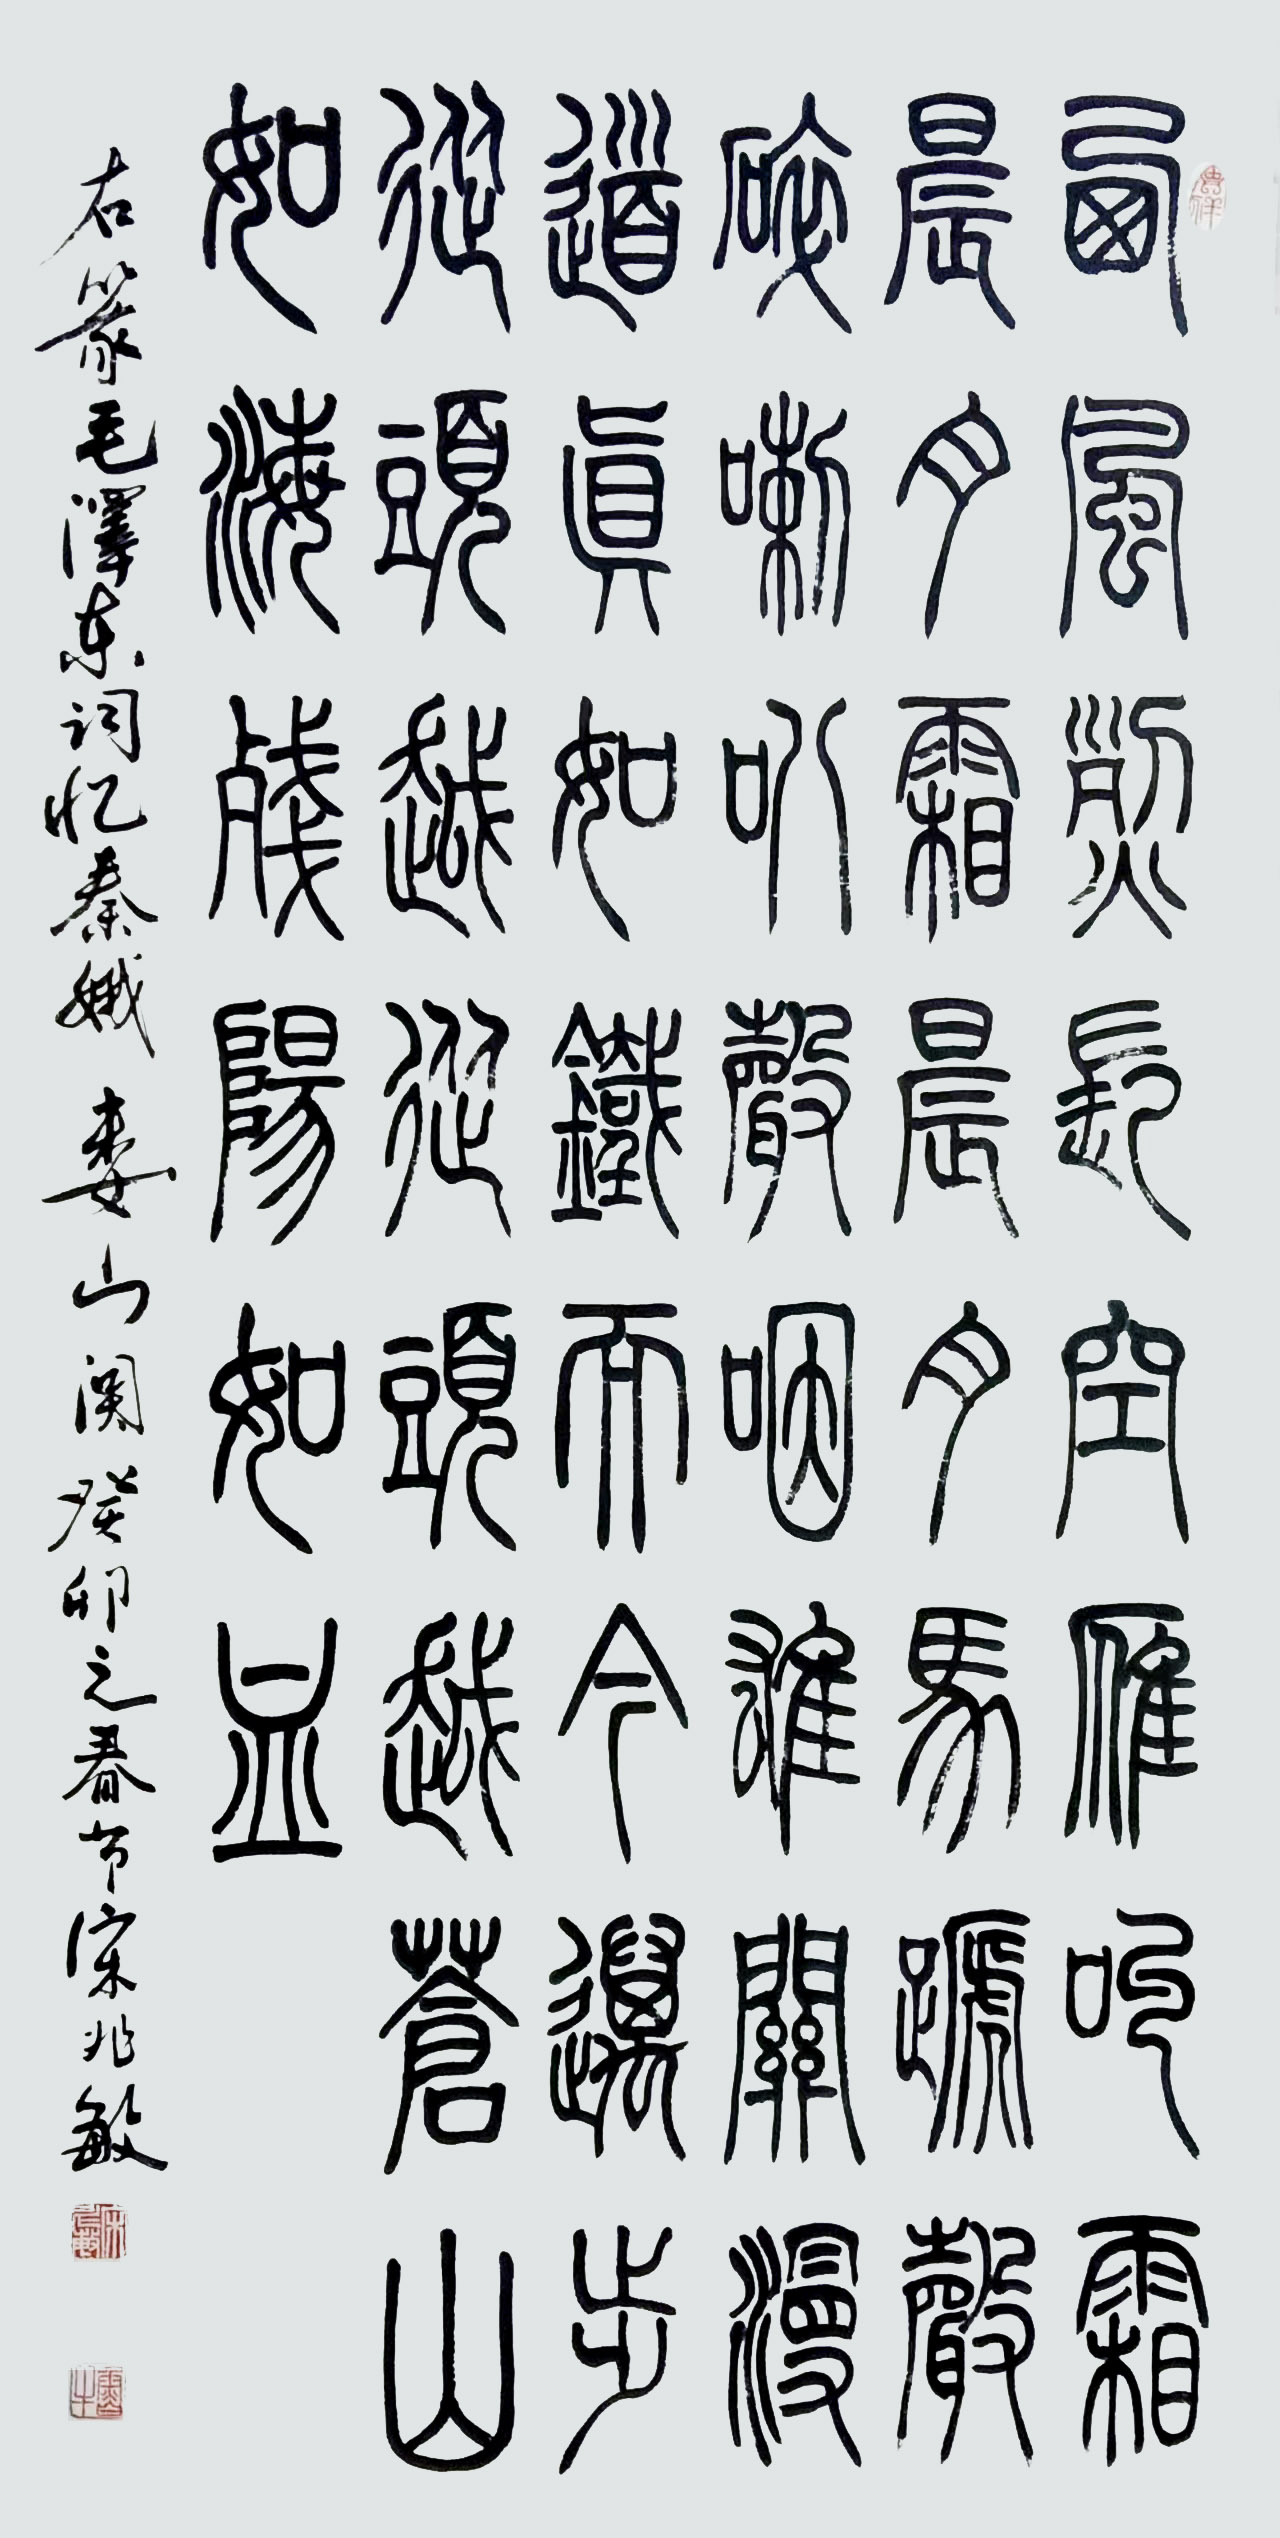 西風烈長空雁叫霜
晨月霜晨月馬蹄聲
碎喇叭聲咽雄關漫
道眞如鐵而今邁步
從頭越從頭越蒼山
如海殘陽如血
右篆毛澤东词忆秦娥 娄山関 癸卯之春节宋兆敏